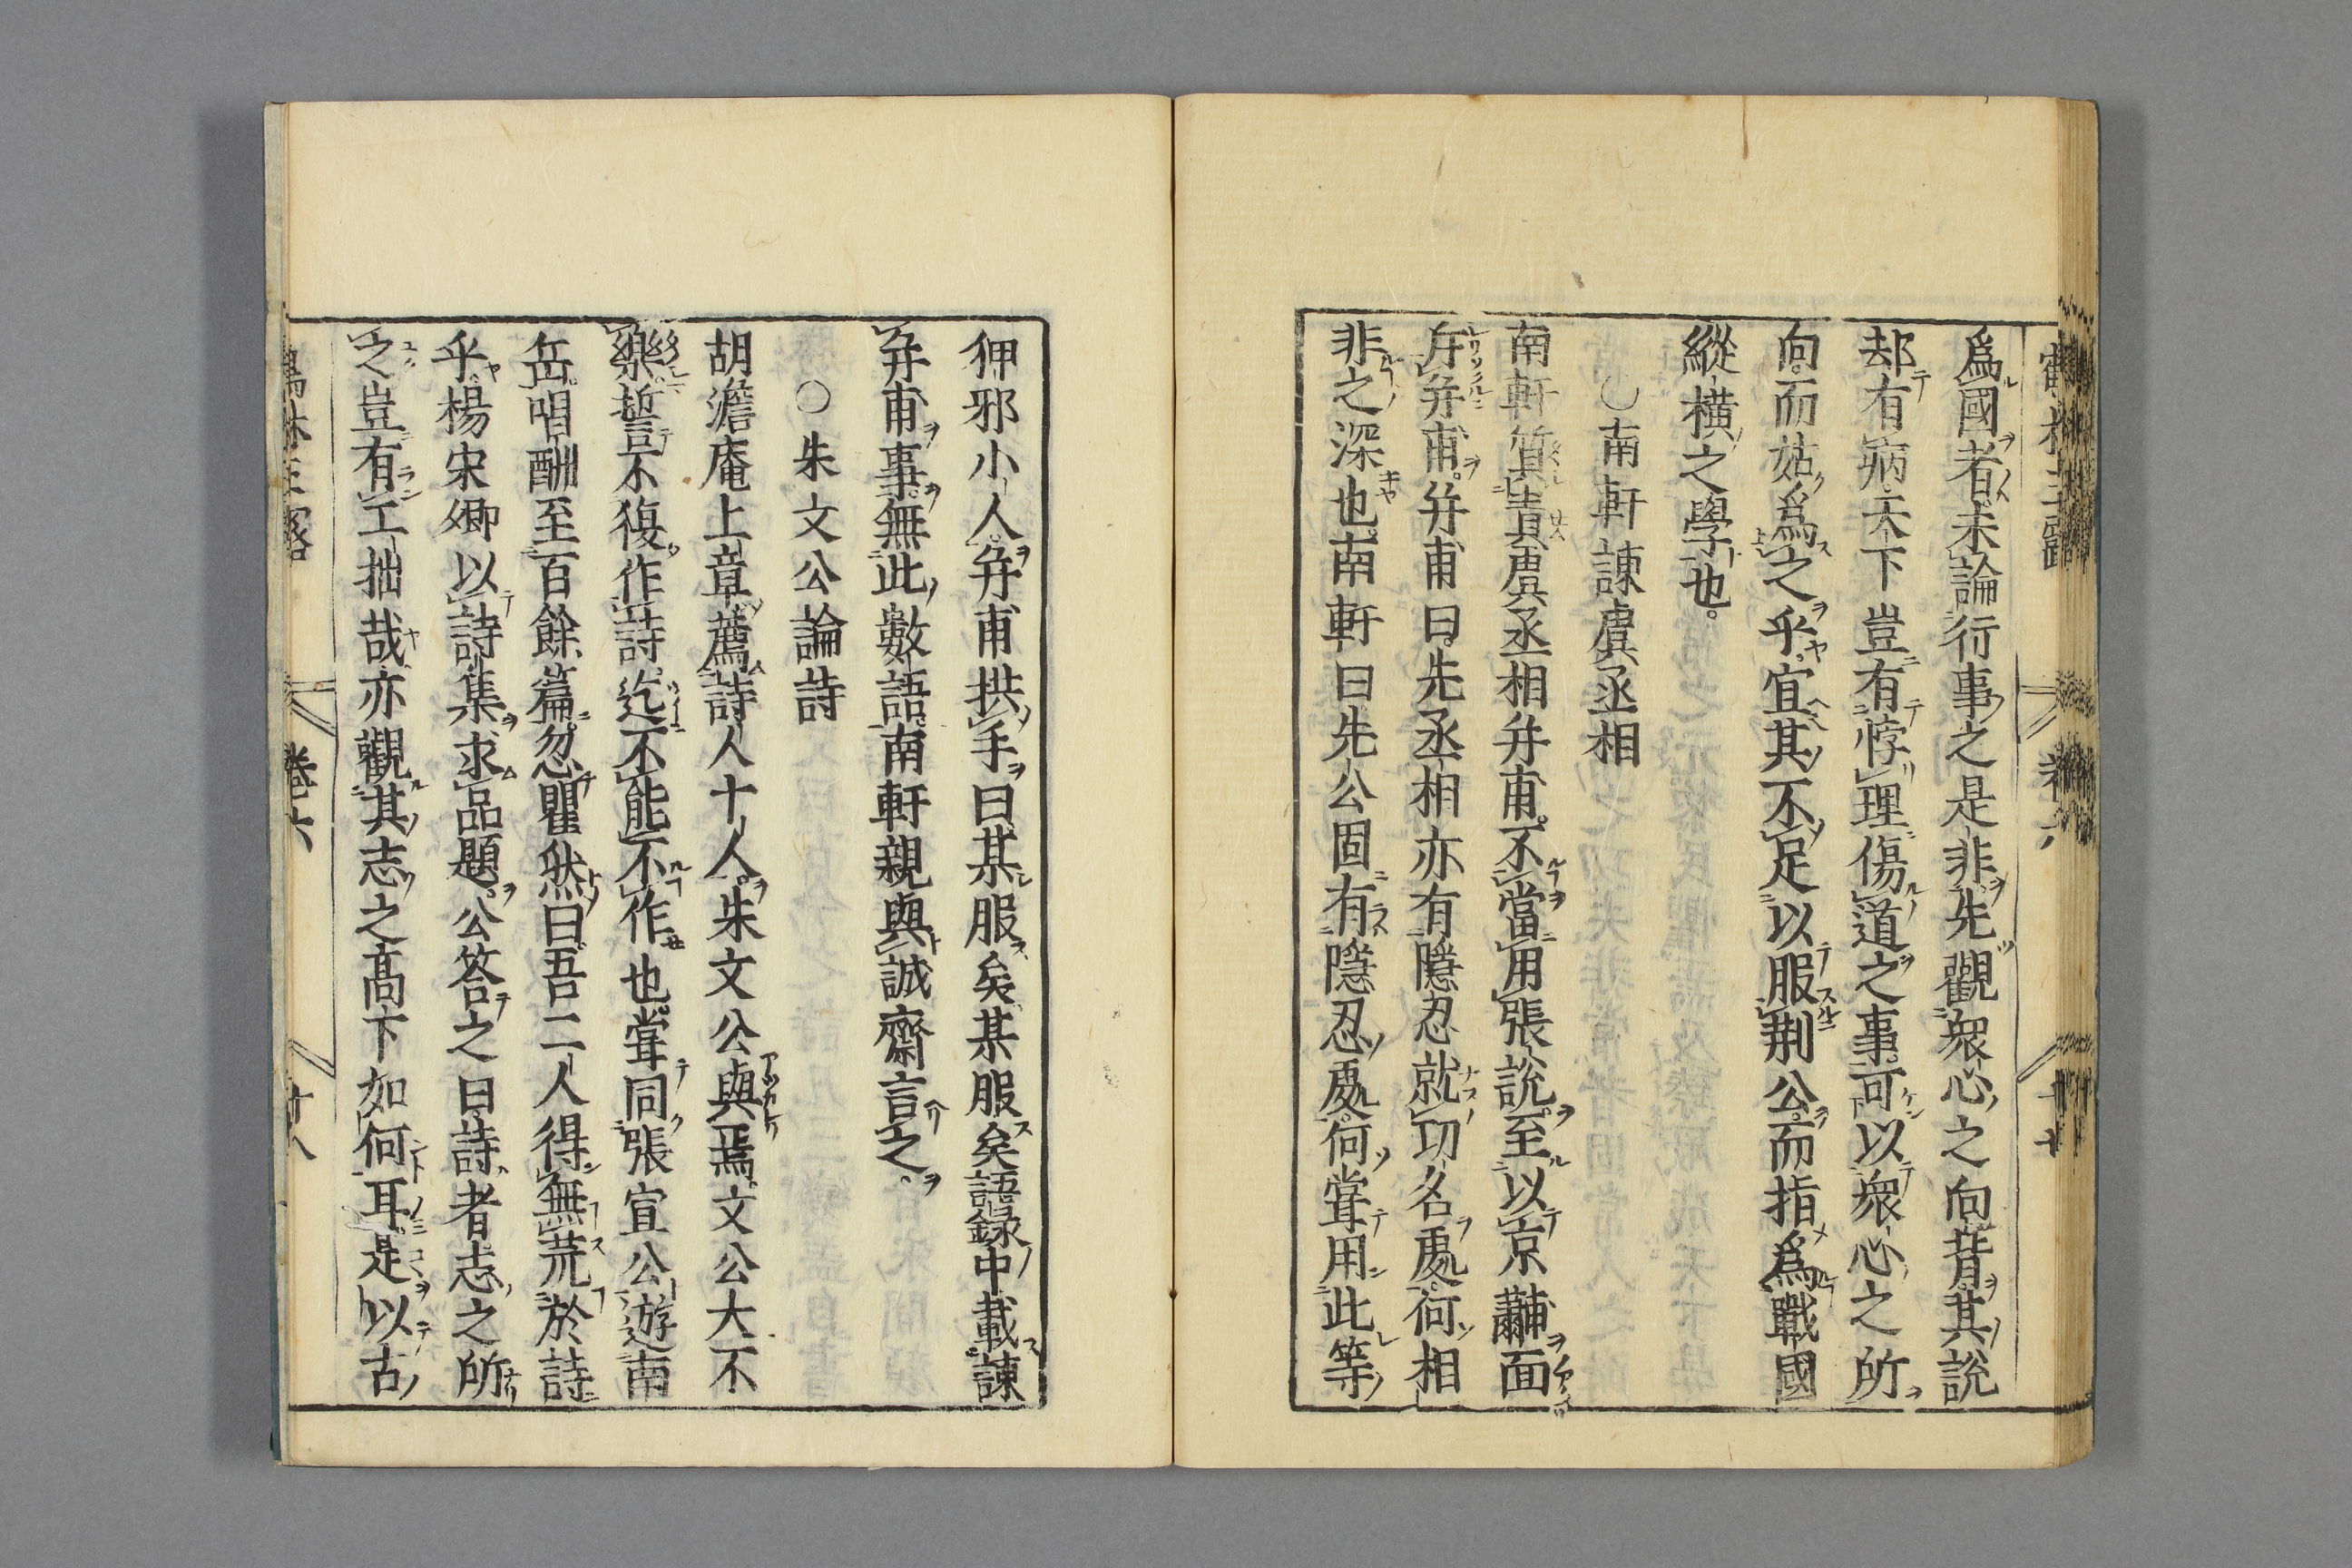 爲國者未論行事之是非先觀衆心之向背其說
却有病天下豈有悖理傷道之事可以衆心之所
向而姑爲之乎宜其不足以服荆公而指爲戰國
縱横之學也
○南軒諫虞丞相
南軒質責虞丞相幷甫不當用張說至以京黼面
斥幷甫幷甫曰先丞相亦有隱忍就功名處何相
非之深也南軒曰先公固有隱忍處何甞用此等
狎邪小人幷甫拱手曰某服矣某服矣語錄中載諫
幷甫事無此數語南軒親與誠齋言之
○朱文公論詩
胡澹庵上章薦詩人十人朱文公與焉文公大不
樂誓不復作詩迄不能不作也甞同張宣公遊南
岳唱酬至百餘篇忽瞿然曰吾二人得無荒於詩
乎楊宋卿以詩集求品題公答之曰詩者志之所
之豈有工拙哉亦觀其志之高下如何耳是以古
卷六
十八